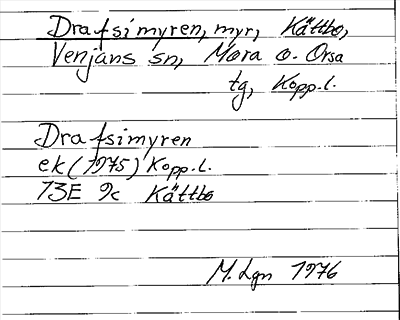 Drafsimyren, myr, Kättbo,
Venjans sn, Mora o. Orsa
tg, Kopp.l.
Drafsimyren
ek (1975) Kopp.l.
13E 9c Kättbo
M. Lgn 1976